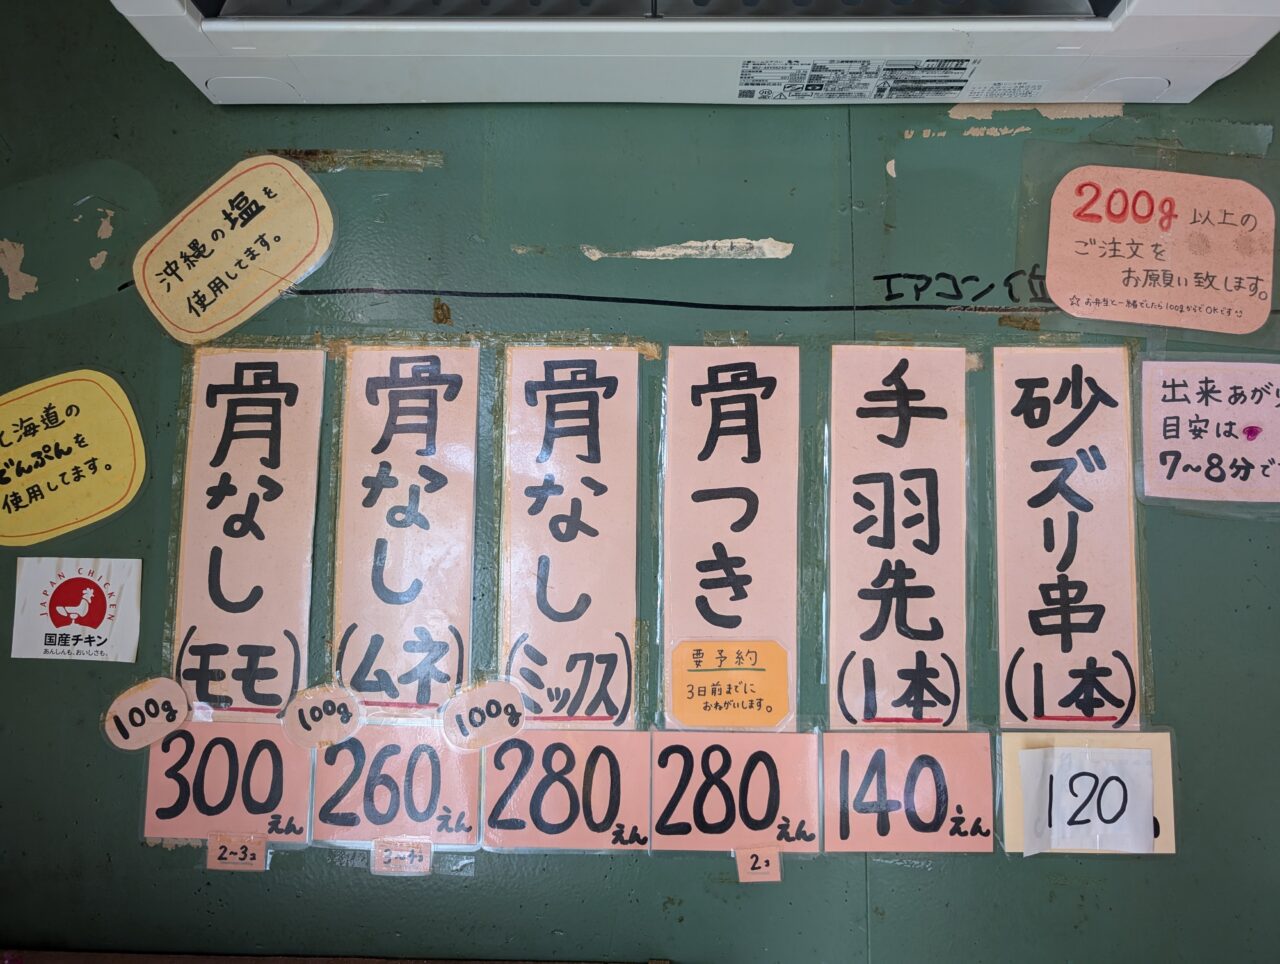 沖縄の塩を
使用してます。
北海道の
でんぷんを
使用してます。
JAPAN CHICKEN
国産チキン
あんしんも、おいしさも。
エアコン位
200g以上の
ご注文を
お願い致します。
☆お弁当と一緒でしたら100gからでOKです
出来あがり
目安は
7〜8分で
骨なし(モモ)
100g
300えん
2〜3コ
骨なし(ムネ)
100g
260えん
3〜4コ
骨なし(ミックス)
100g
280えん
骨つき
要予約
3日前までに
おねがいします。
280えん
2コ
手羽先(1本)
140えん
砂ズリ串(1本)
120